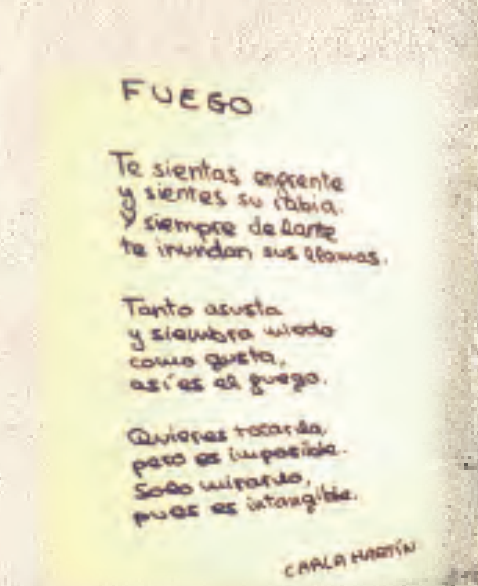 FUEGO
Te sientas enfrente
y sientes su rabia.
Y siempre delante
te inundan sus llamas.
Tanto asusta
y siembra miedo
como gusta,
así es el fuego.
Quieres tocarla,
pero es imposible.
Solo mirarlo,
pues es intangible.
CARLA MARTÍN